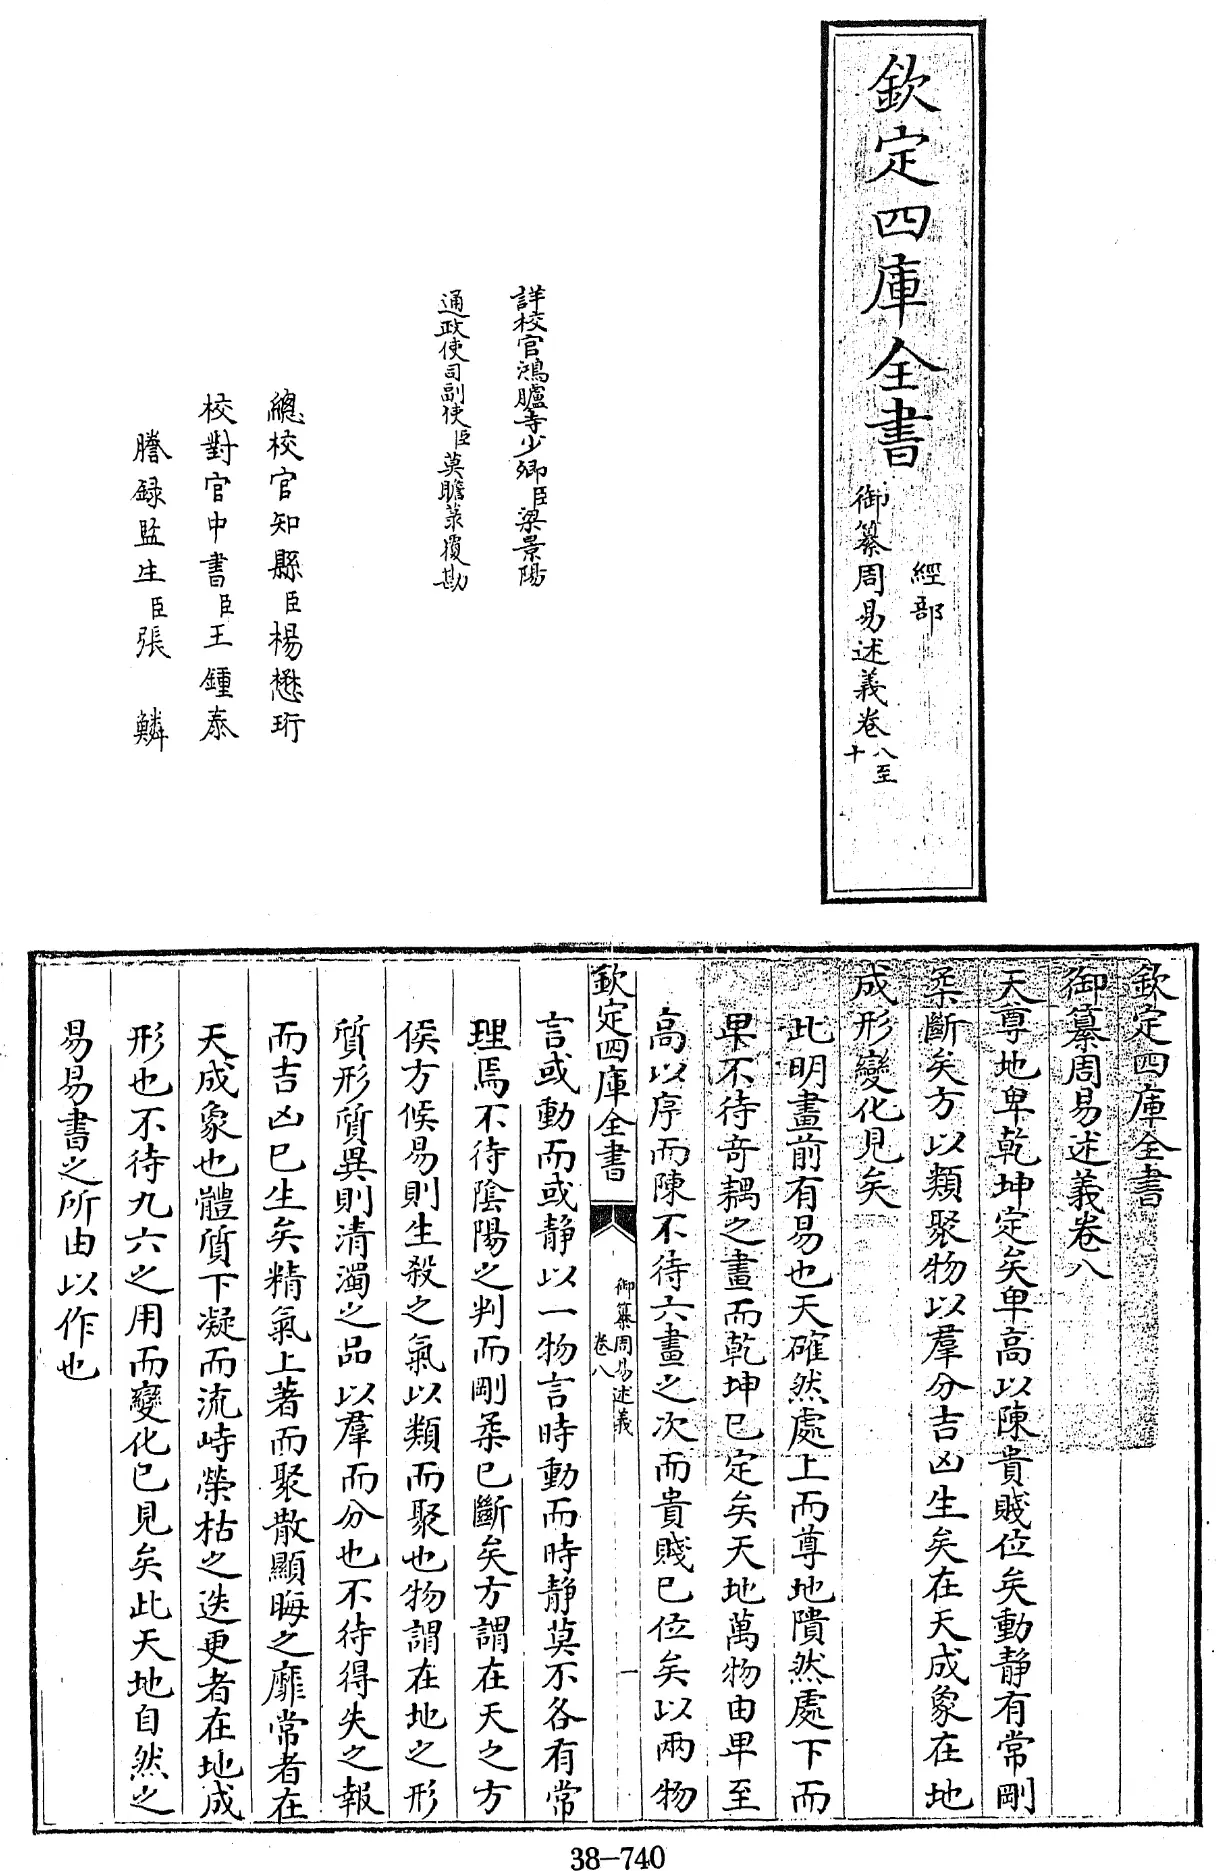 欽定四庫全書
經部
御纂周易述義卷八至十
詳校官鴻臚寺少卿臣梁景陽
通政使司副使臣莫瞻菉覆勘
總校官知縣臣楊懋珩
校對官中書臣王鍾泰
謄録監生臣張鱗
欽定四庫全書
御纂周易述義卷八
天尊地卑乾坤定矣卑高以陳貴賤位矣動静有常剛
柔斷矣方以類聚物以羣分吉凶生矣在天成象在地
成形變化見矣
此明畫前有易也天確然處上而尊地隤然處下而
卑不待奇耦之畫而乾坤已定矣天地萬物由卑至
高以序而陳不待六畫之次而貴賤已位矣以兩物
欽定四庫全書
御纂周易述義
卷八
一
言或動而或静以一物言時動而時静莫不各有常
理焉不待陰陽之判而剛柔已斷矣方謂在天之方
候方候易則生殺之氣以類而聚也物謂在地之形
質形質異則清濁之品以羣而分也不待得失之報
而吉凶已生矣精氣上著而聚散顯晦之靡常者在
天成象也體質下凝而流峙榮枯之迭更者在地成
形也不待九六之用而變化已見矣此天地自然之
易易書之所由以作也
38-740